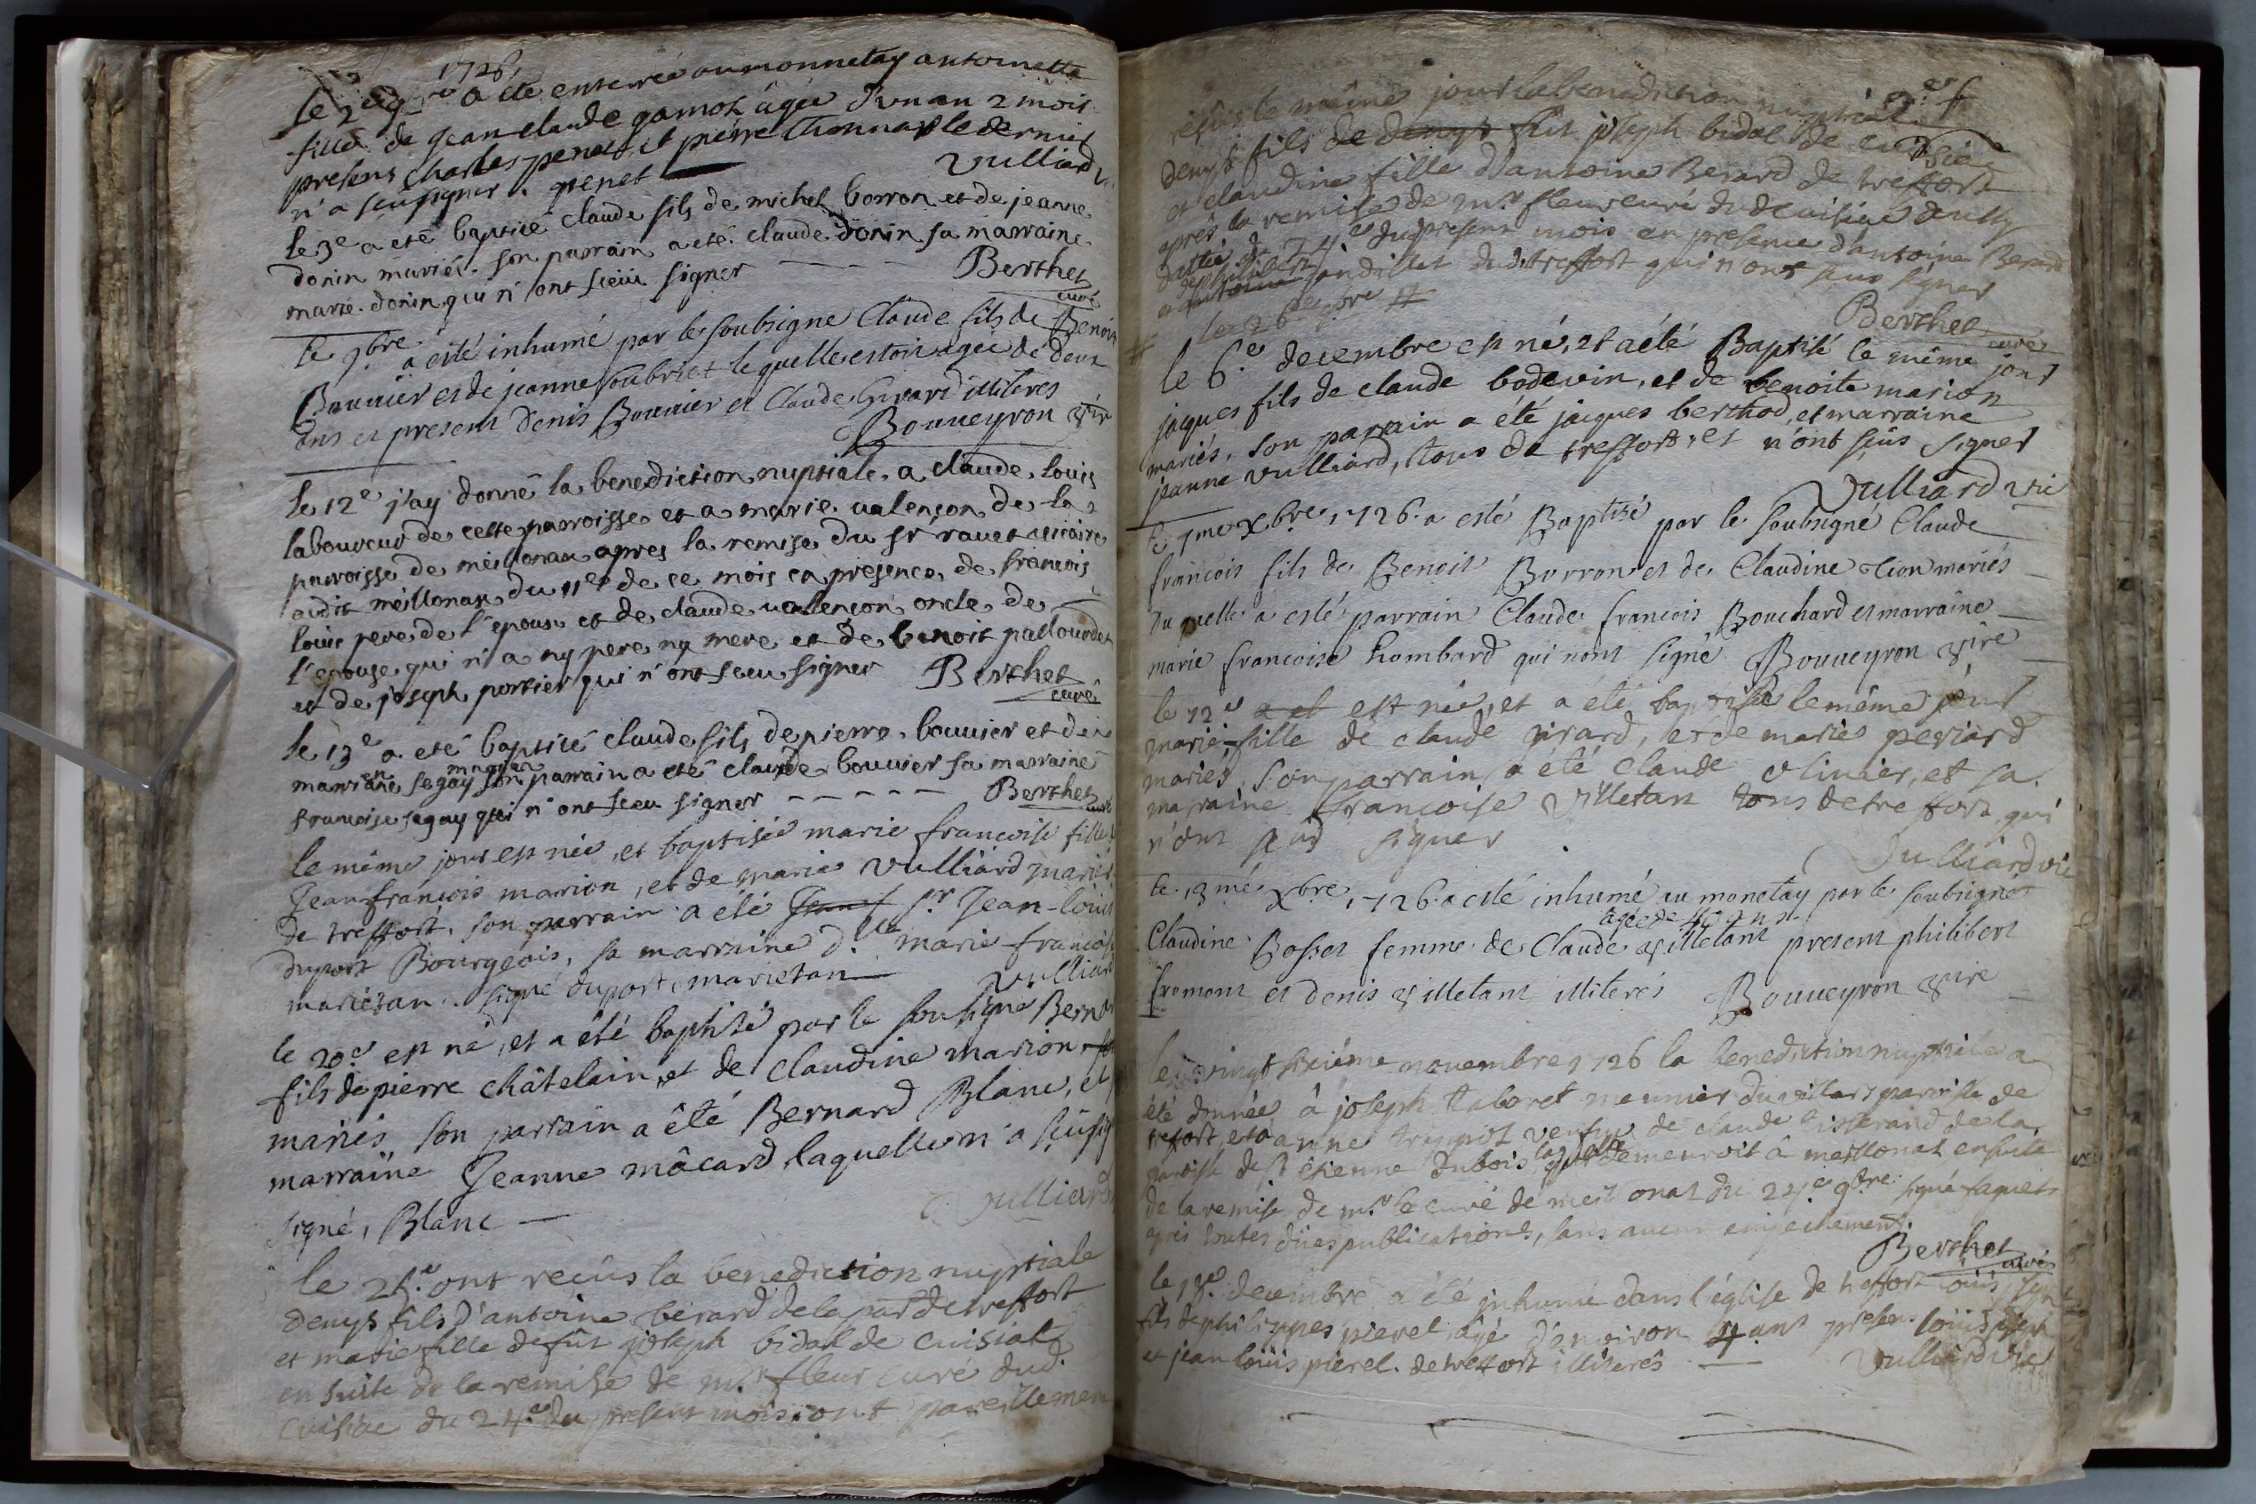 1726
le 2e 9bre a été enterrée au monnetay antoinette
fille de Jean claude gamoz âgée d'un an 2 mois
presens charles penet, et pierre Chonnard le dernier
n'a sçu signer. penet Vulliard
le 3e a eté baptisé claude fils de michel borron et de jeanne
donin mariés. son parrain a eté claude donin sa marraine
marie donin qui n'ont sceu signer Berthet
curé
le 9bre a esté inhumé par le soubsigné Claude fils de Benoit
Bouuier et de jeanne soubriet lequelle estoit agée de deux
ans et present Denis Bouuier et Claude Girard illiteres
Bouueyron vire
le 12e j'ay donné la benediction nuptiale a claude louis
laboureur de cette parroisse et a marie valençon de la
parroisse de meillonan apres la remise du sr rauet vicaire
audit meillonan du 11e de ce mois en presence de francois
louis pere de l'epoux et de claude valençon oncle de
l'epouse qui n'a ny pere ny mere et de benoit pallourdet
et de joseph portier qui n'ont sceu signer Berthet
curé
le 13e a eté baptisé claude fils de pierre bouuier et de
marianne segay son parrain a eté claude bouuier sa marraine
francoise segay qui n'ont sceu signer Berthet
curé
le même jour est née, et baptisée marie francoise fille
Jean francois marion, et de marie Vulliard mariés
de treffort, son parrain a été sr Jean-louis
duport Bourgeois, sa marraine dlle marie francoise
marietan. signé duport, marietan Vulliard
le 20e est né, et a été baptisé par le sousigné Bernard
fils de pierre châtelain, et de claudine marion
mariés son parrain a été Bernard Blanc, et
marraine Jeanne mâcard laquelle n'a sçu sig
signé, Blanc Vulliard
le 25e ont reçus la benediction nuptiale
denys fils d'antoine berard de la par de treffort
et marie fille de fût joseph bidal de cuisiat
en suite de la remise de mr fleur curé dud.
cuisiac du 24e du present mois; ont pareillement
reçus le même jour la benediction nuptiale
denys fils de denys fût joseph bidal de cuisiac
et claudine fille d'antoine Berard de treffort
après la remise de mr fleur curé du d cuisiac
dattée du 24e du present mois en presence d'antoine Berard
jandillet dud. treffort qui n'ont sçus signer
le 26e 9bre # Berthet
curé
le 6e decembre est né, et a été Baptisé le même jour
jaques fils de claude bodevin, et de benoite marion
mariés, son parrain a été jacques berthod, et marraine
jeanne vulliard, tous de treffort, et n'ont sçus signer
Vulliard vic
le 7me Xbre 1726. a esté Baptisé par le soubsigné Claude
francois fils de Benoit Borron et de Claudine Lion mariés
du quelle a esté parrain Claude francois Bouchard et marraine
marie francoise hombard qui nont signé Bouueyron vire
le 12e est née, et a été baptisée le même jour
marie fille de claude girard, et de maries periard
mariés, son parrain a été claude olivier, et sa
marraine francoise Villetan tous de treffort qui
n'ont sçus signer
Vulliard vic
le 13me Xbre 1726 a esté inhumé au monetay par le soubsigner
agée de 40 ans
Claudine Bosset femme de Claude villetant present philibert
fromont et denis villetant illiterés Bouueyron vire
le vingt sixiéme nouembre 1726 la benediction nuptiale a
été donnée à joseph taboret meunier du villars paroisse de
trefort, et a anne veufue de claude tisserand de la
paroisse de st étienne dubois laquelle demeuroit à meillonat ensuite
de la remise de mr le curé de meillonat du 22e 9bre signé faguet
apres toutes dües publications, sans aucun empeschement.
Berthet
curé
le 18e decembre a été inhumé dans l'église de treffort loüis
fils de philippes pierel âgé d'environ 4 ans presen. loüis
et jean loüis pierel de treffort illiterés Vulliard vic